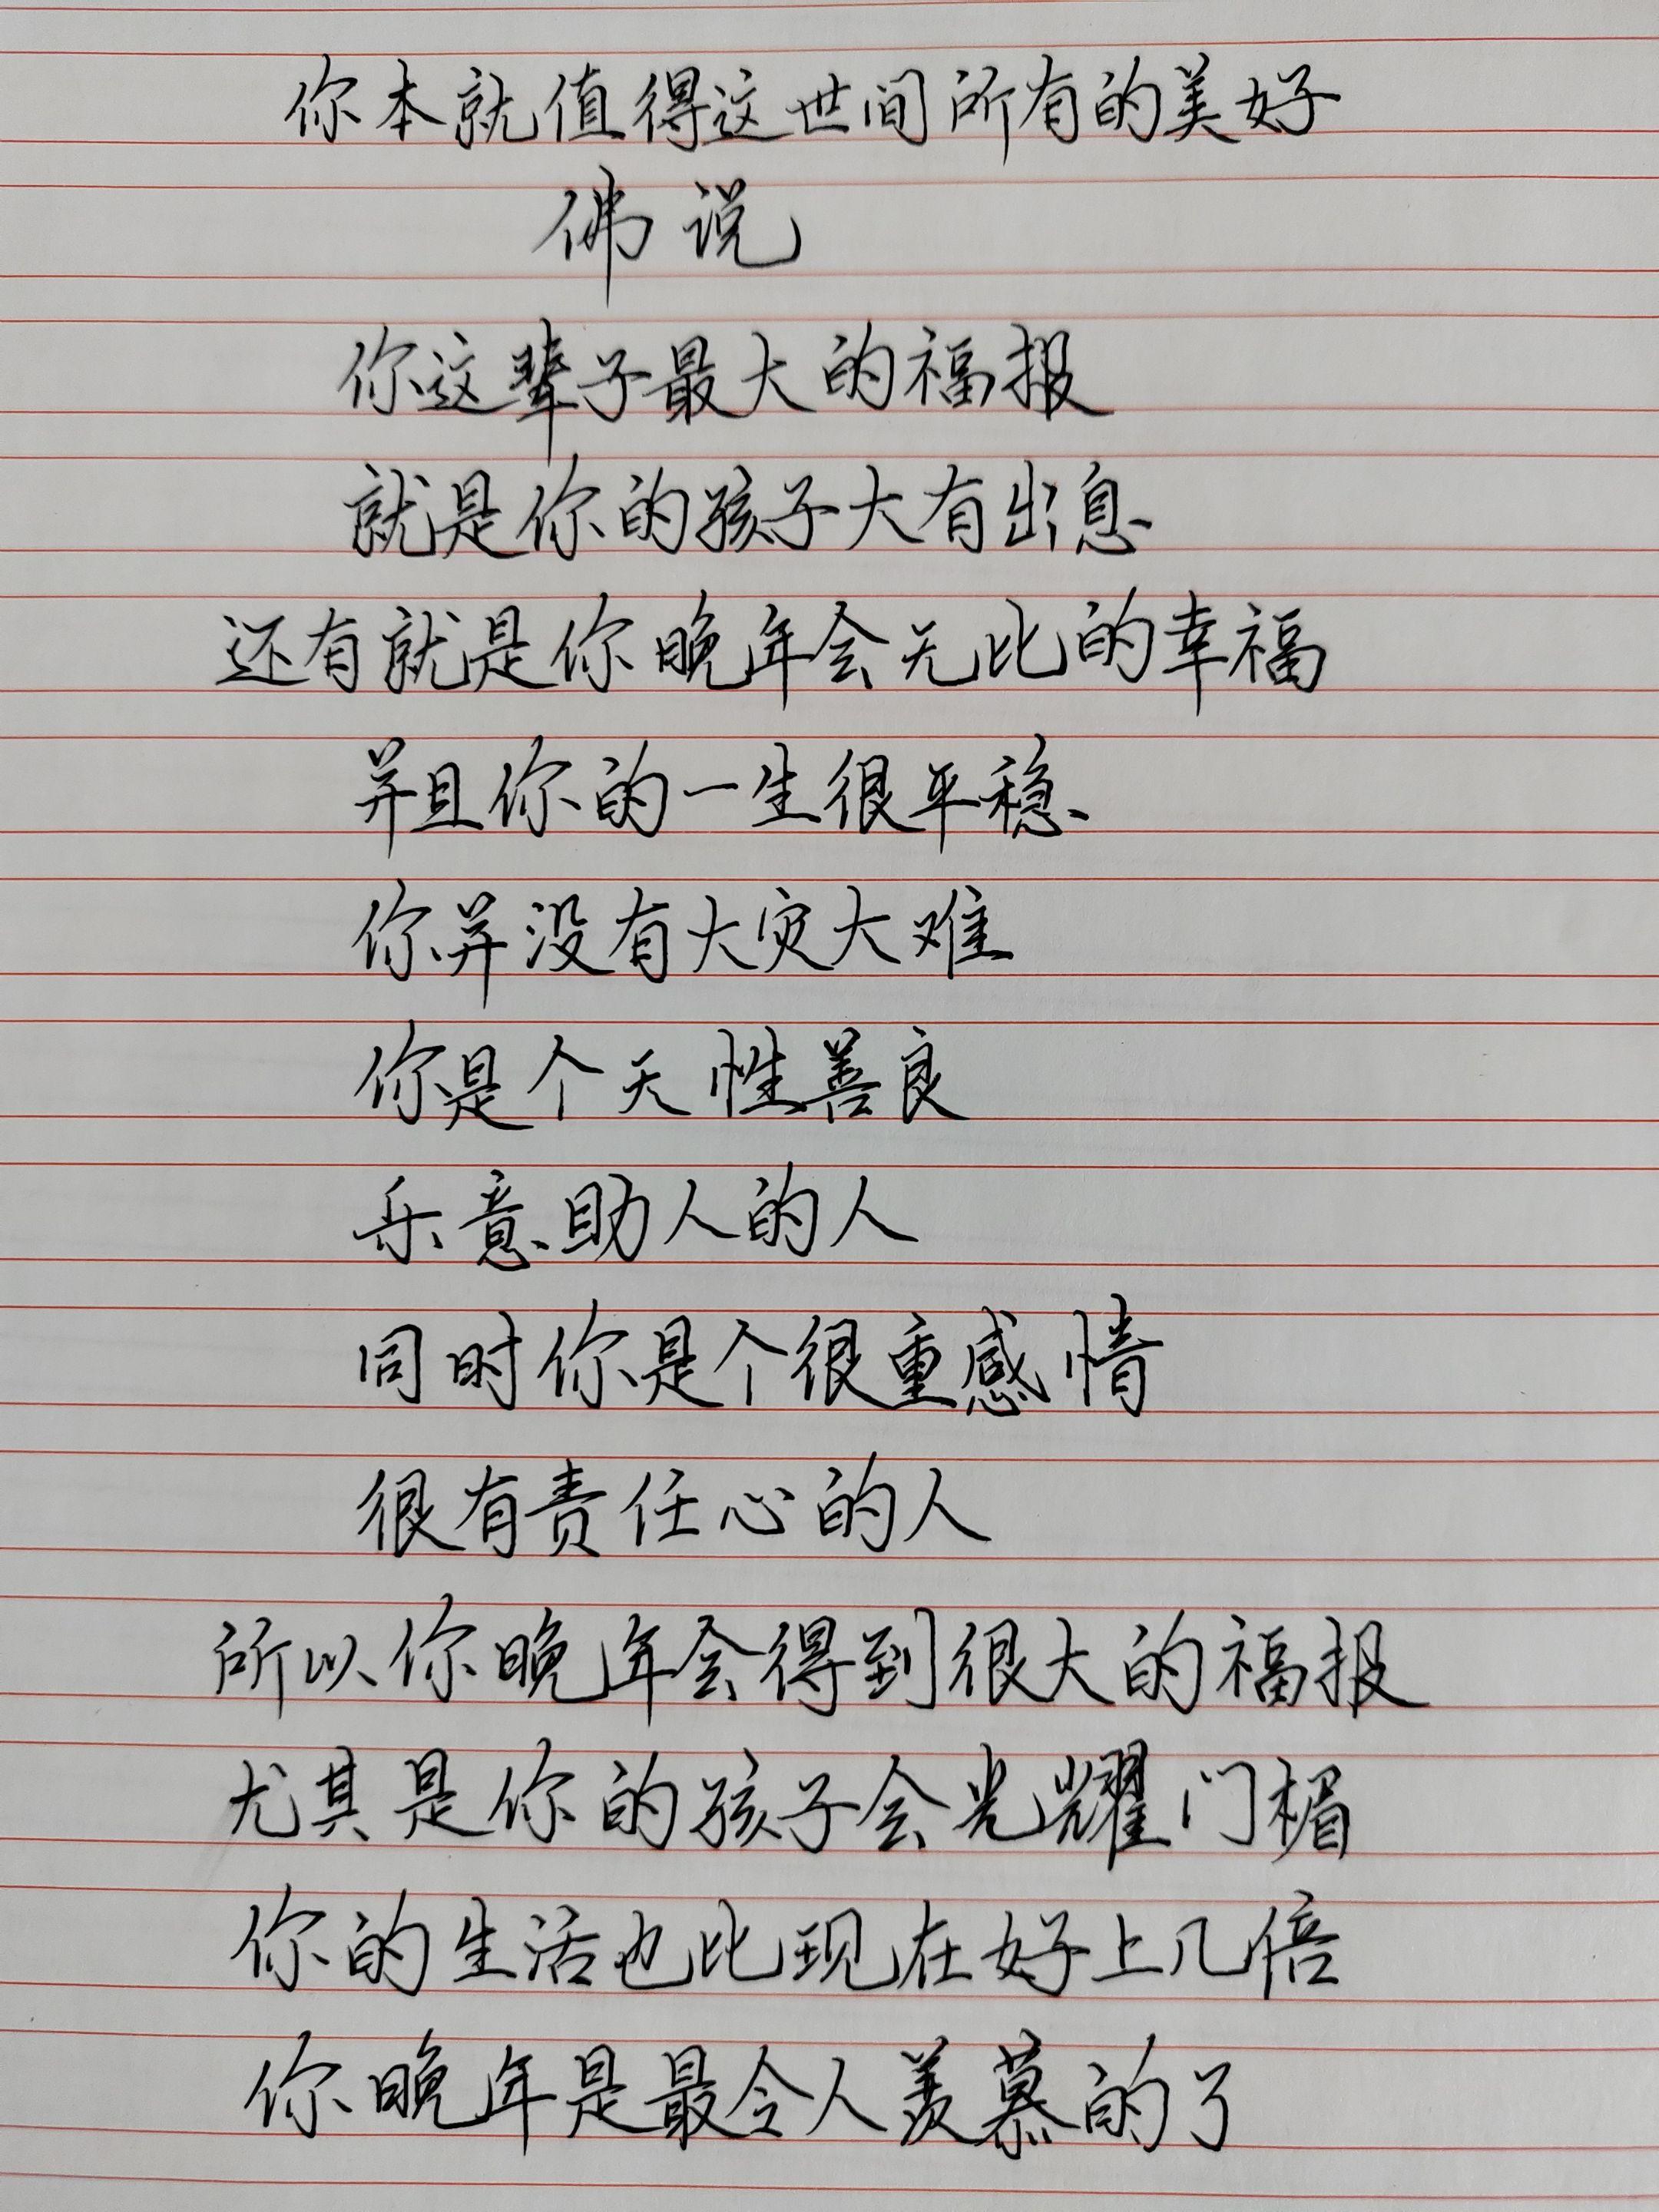 你本就值得这世间所有的美好
佛说
你这辈子最大的福报
就是你的孩子大有出息
还有就是你晚年会无比的幸福
并且你的一生很平稳
你并没有大灾大难
你是个天性善良
乐意助人的人
同时你是个很重感情
很有责任心的人
所以你晚年会得到很大的福报
尤其是你的孩子会光耀门楣
你的生活也比现在好上几倍
你晚年是最令人羡慕的了